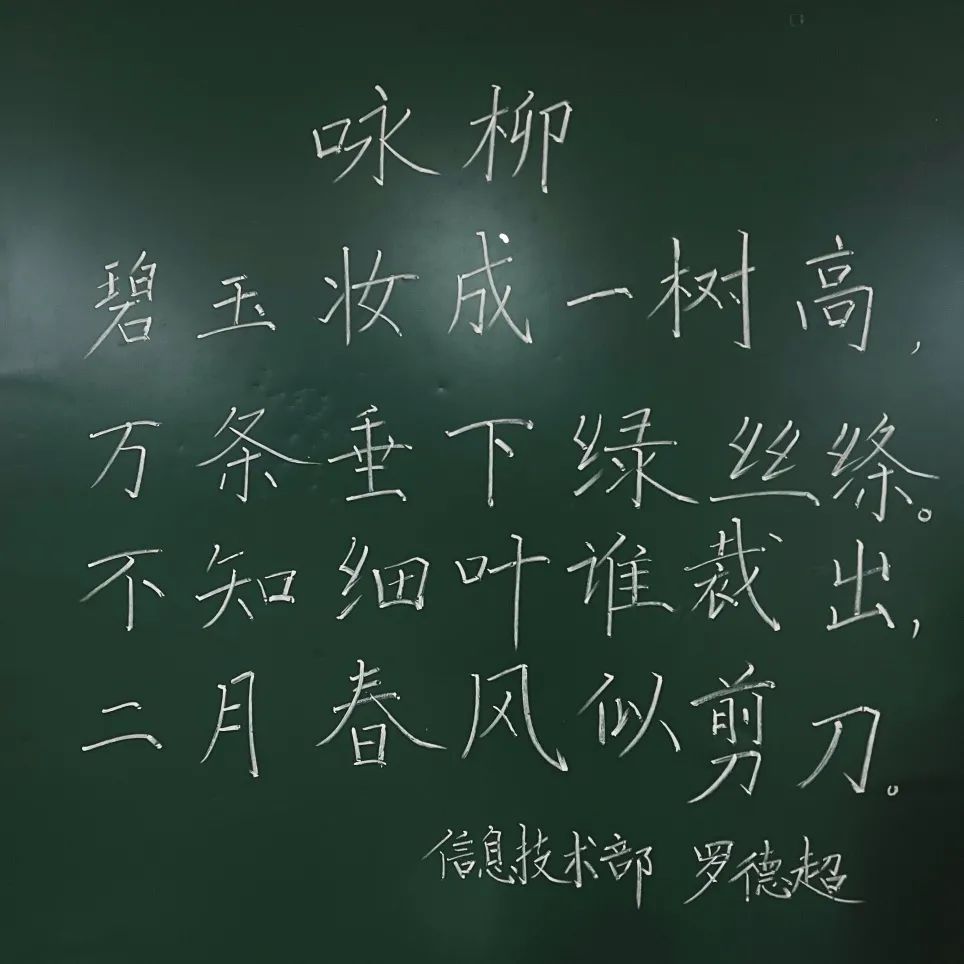 咏柳
碧玉妆成一树高,
万条垂下绿丝绦。
不知细叶谁裁出,
二月春风似剪刀。
信息技术部 罗德超